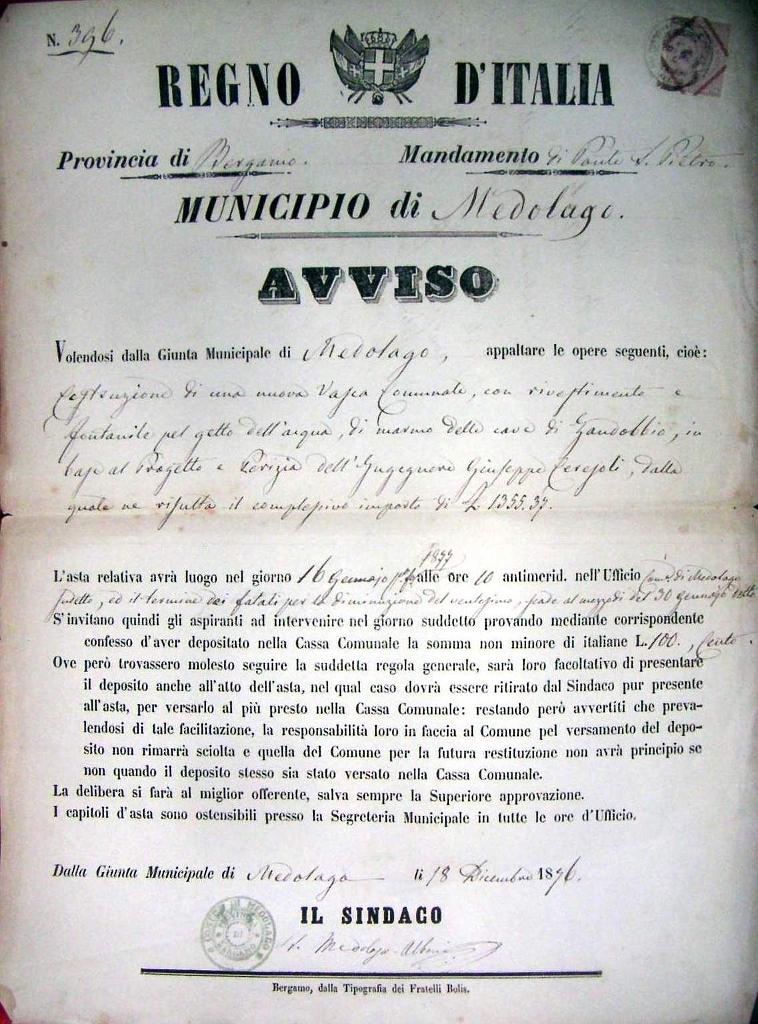 N. 396.
REGNO D'ITALIA
Provincia di Bergamo. Mandamento di Ponte S. Pietro.
MUNICIPIO di Medolago.
AVVISO
Volendosi dalla Giunta Municipale di Medolago, appaltare le opere seguenti, cioè:
Costruzione di una nuova Vasca Comunale, con rivestimento e
fontanile pel getto dell'acqua, di marmo delle cave di Gandobbio, in
base al Progetto e Perizia dell'Ingegnere Giuseppe Ceresoli, dalla
quale ne risulta il complessivo importo di £ 1355.37.
L'asta relativa avrà luogo nel giorno 16 Gennajo 1877 alle ore 10 antimerid. nell'Ufficio Com.le di Medolago
sudetto, ed il termine dei fatali per la diminuzione del ventesimo, scade al mezzodì del 30 gennajo detto
S'invitano quindi gli aspiranti ad intervenire nel giorno suddetto provando mediante corrispondente
confesso d'aver depositato nella Cassa Comunale la somma non minore di italiane L. 100., Cento.
Ove però trovassero molesto seguire la suddetta regola generale, sarà loro facoltativo di presentare
il deposito anche all'atto dell'asta, nel qual caso dovrà essere ritirato dal Sindaco pur presente
all'asta, per versarlo al più presto nella Cassa Comunale: restando però avvertiti che preva-
lendosi di tale facilitazione, la responsabilità loro in faccia al Comune pel versamento del depo-
sito non rimarrà sciolta e quella del Comune per la futura restituzione non avrà principio se
non quando il deposito stesso sia stato versato nella Cassa Comunale.
La delibera si farà al miglior offerente, salva sempre la Superiore approvazione.
I capitoli d'asta sono ostensibili presso la Segreteria Municipale in tutte le ore d'Ufficio.
Dalla Giunta Municipale di Medolago li 18 Dicembre 1876.
IL SINDACO
Medolago-Albani
Bergamo, dalla Tipografia dei Fratelli Bolis.